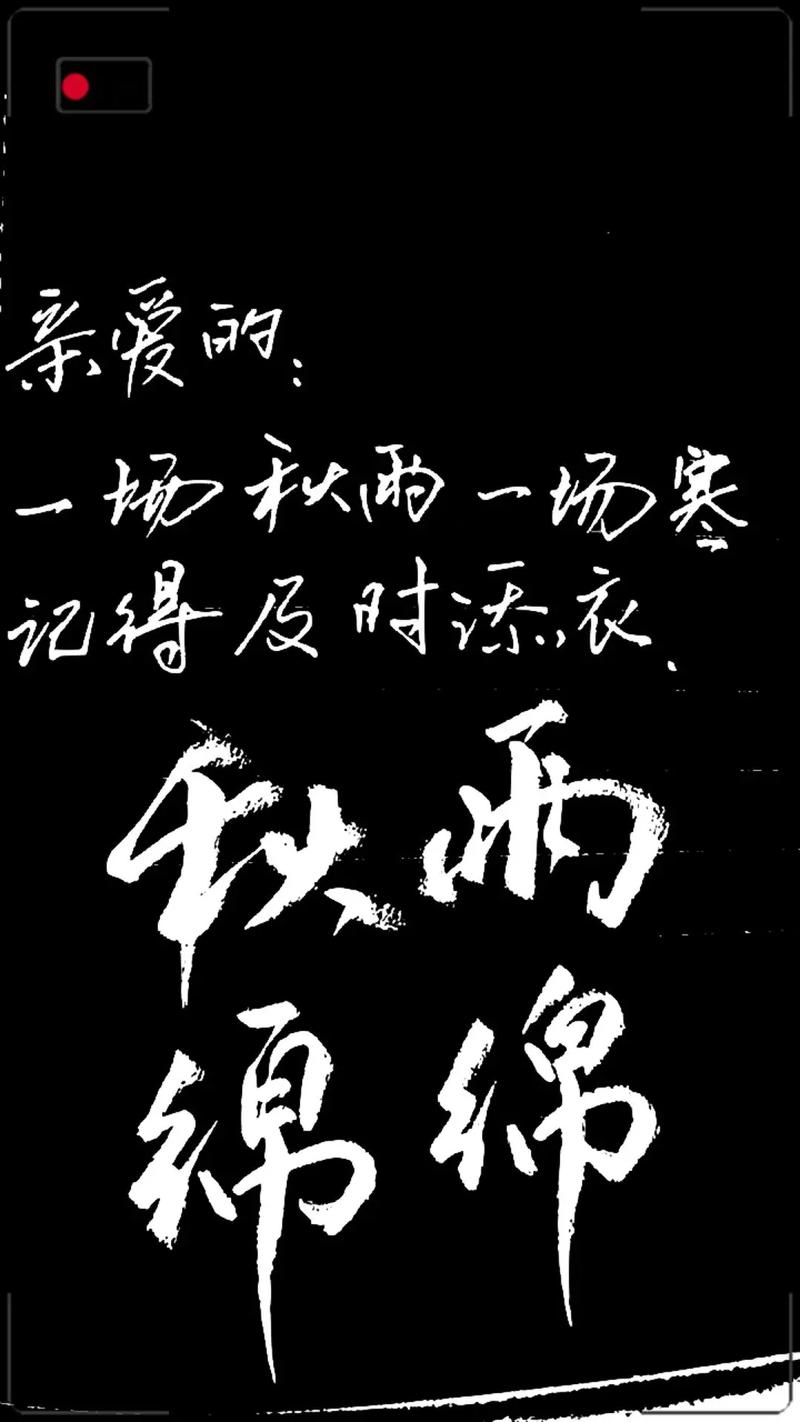 亲爱的：
一场秋雨一场寒
记得及时添衣.
秋雨
绵绵